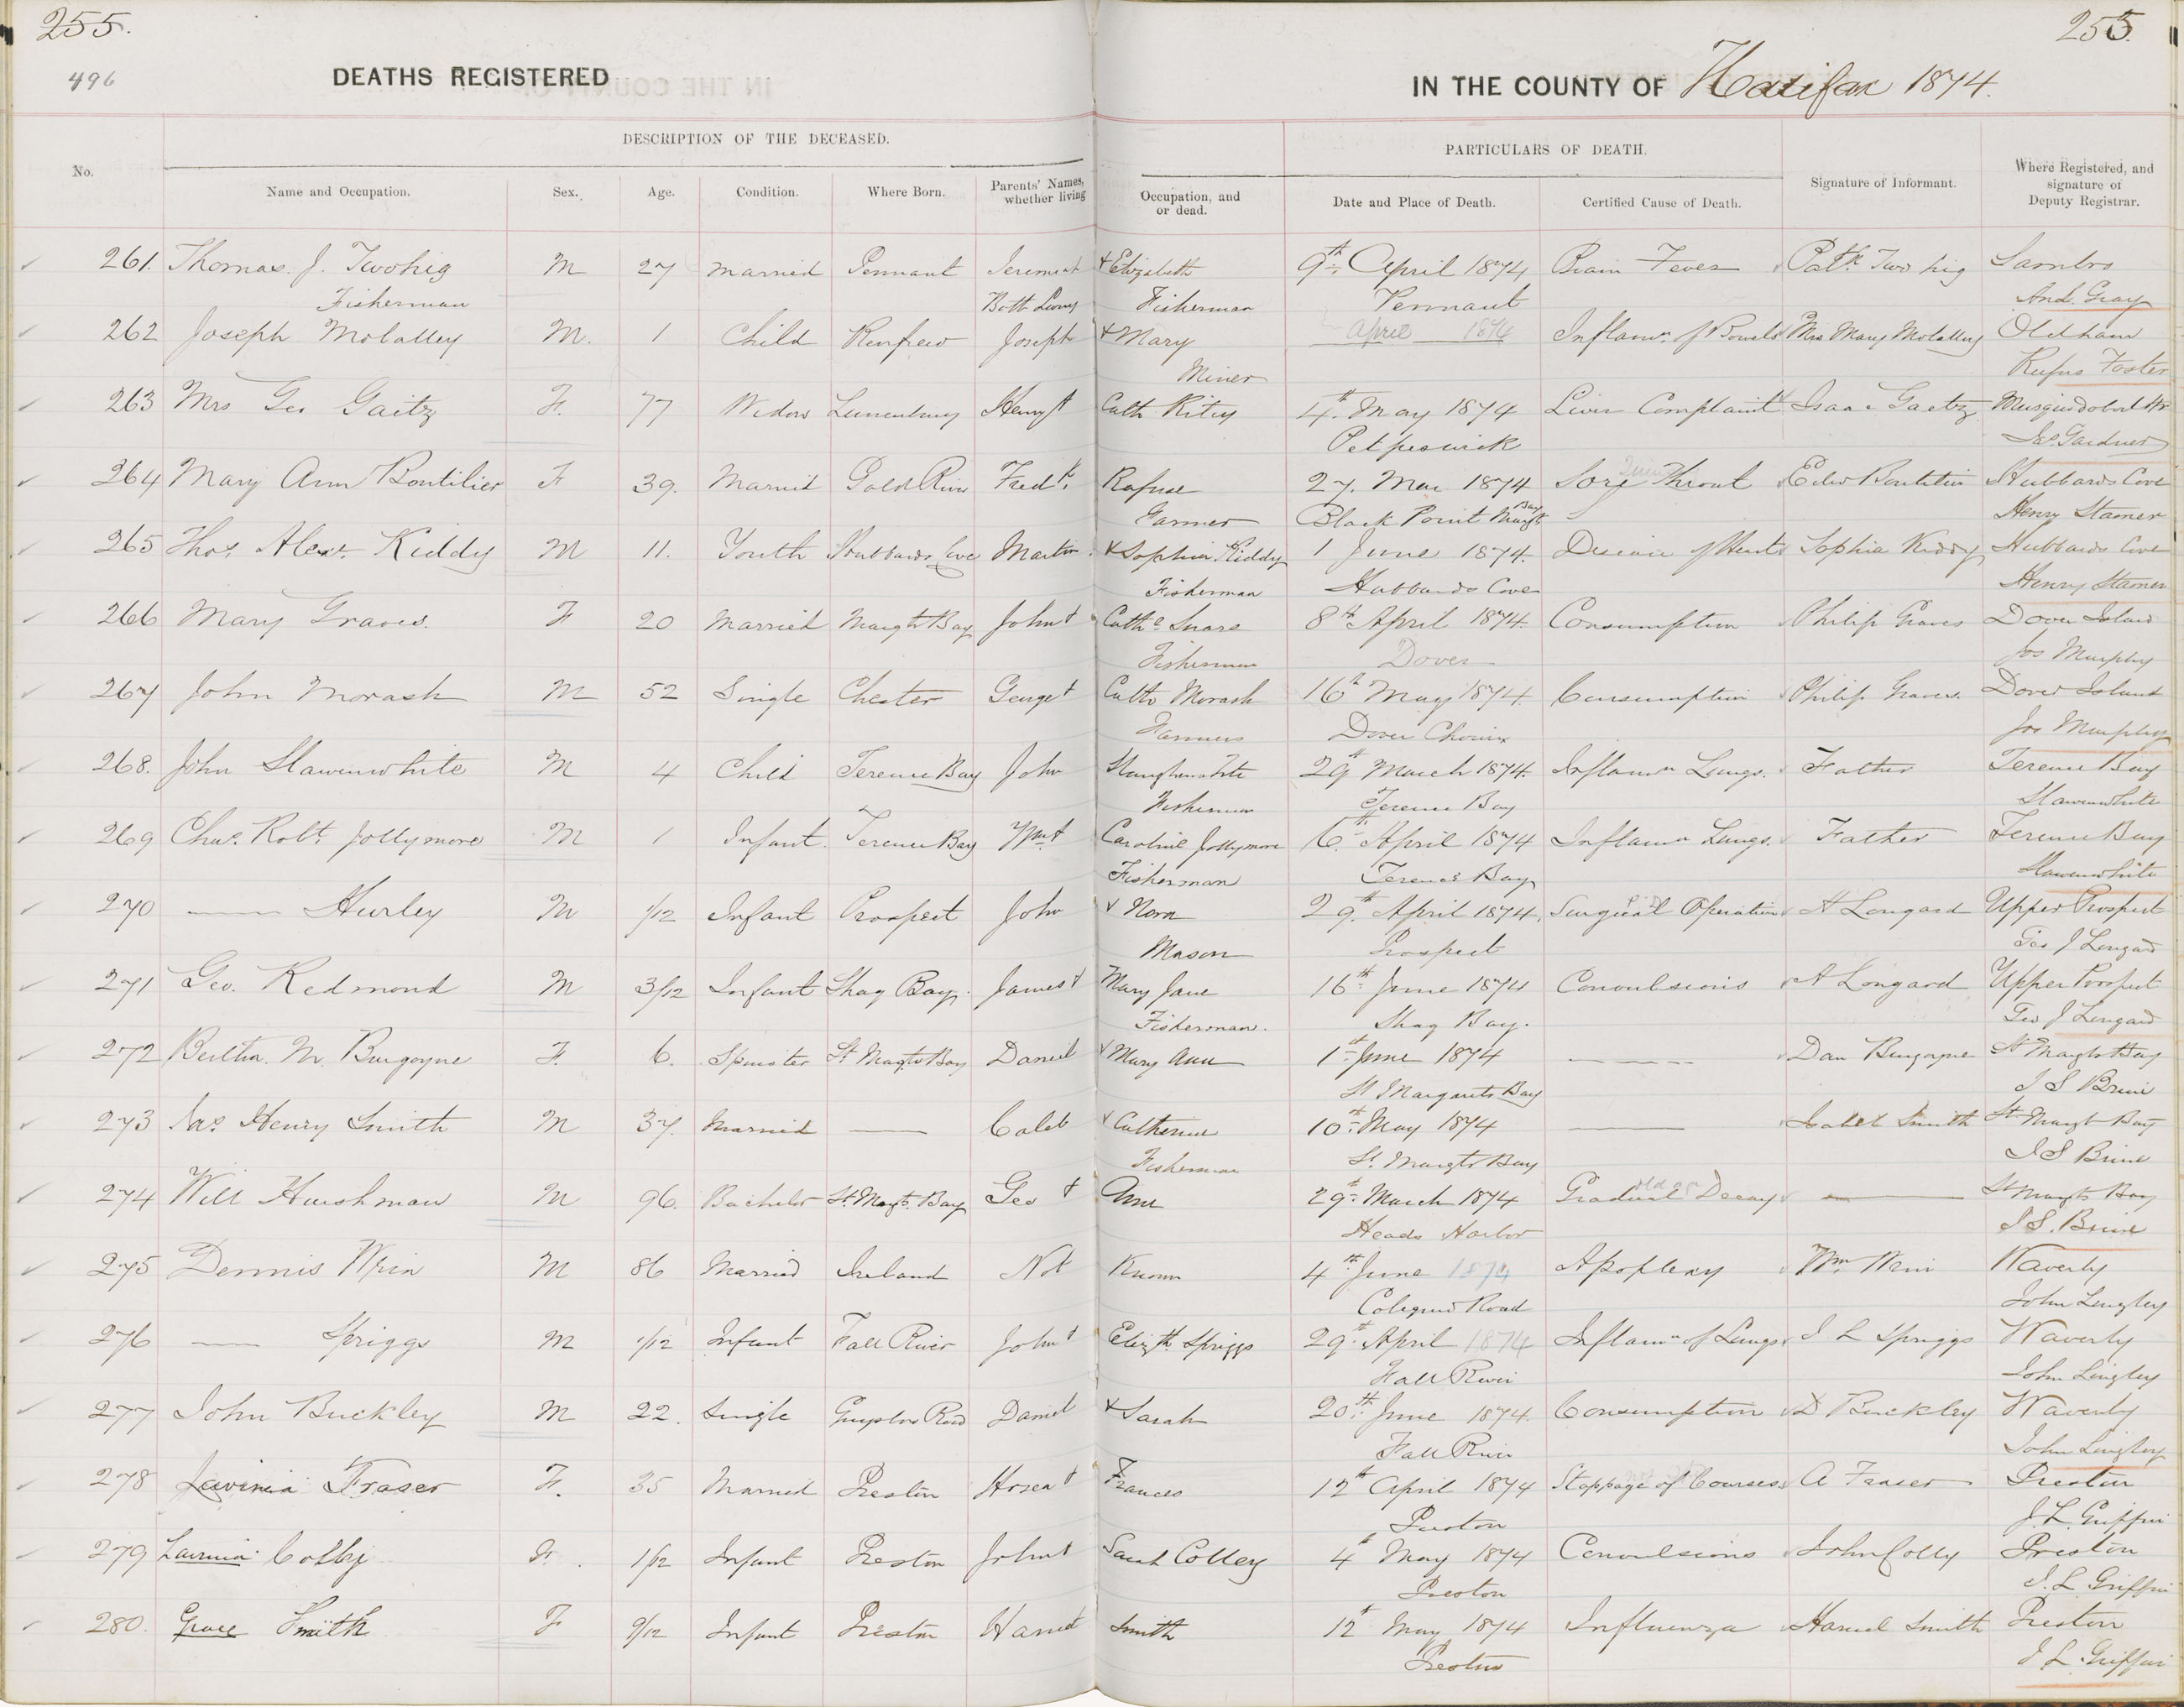 255.
255.
496
DEATHS REGISTERED
IN THE COUNTY OF Halifax 1874.
DESCRIPTION OF THE DECEASED.
PARTICULARS OF DEATH.
No.
Name and Occupation.
Sex.
Age.
Condition.
Where Born.
Parents' Names, whether living
Occupation, and or dead.
Date and Place of Death.
Certified Cause of Death.
Signature of Informant.
Where Registered, and signature of Deputy Registrar.
261. Thomas. J. Twohig M 27 Married Pennant Jeremiah + Elizabeth 9th April 1874 Brain Fever Patk Twohig Sambro
Fisherman Both Living Fisherman Pennant And. Gray
262 Joseph M. 1 Child Renfrew Joseph + Mary April 1874 Inflamn. of Bowels Mrs Mary Oldham
Miner Rufus Foster
263 Mrs Geo Gaitz F. 77 Widow Lunenburg Henry + Cath 4th May 1874 Liver Complaint Isaac Gaetz Musquodoboit Hr
Petpeswick Jas. Gardner
264 Mary Ann Boutilier F 39. Married Gold River Fredk. Rafuse 27. Mar 1874 Sore Throat Edw Boutilier Hubbards Cove
Farmer Black Point Margts Bay Henry Stamer
265 Thos. Alexr. Kiddy M 11. Youth Hubbards Cove Martin + Sophia Kiddy 1 June 1874. Disease of Heart Sophia Kiddy Hubbards Cove
Fisherman Hubbards Cove Henry Stamer
266 Mary Graves. F 20 Married Margts Bay John + Cathe Snare 8th April 1874. Consumption Philip Graves Dover Island
Fisherman Dover Jos Murphy
267 John Morash M 52 Single Chester George + Cathe Morash 16th May 1874. Consumption Philip Graves. Dover Island
Farmers Dover Jos Murphy
268. John Slawenwhite M 4 Child Terence Bay John 29th March 1874. Inflamn Lungs. Father Terence Bay
Fisherman Terence Bay Slawenwhite
269 Chas. Robt. Jollymore M 1 Infant. Terence Bay Wm + Caroline Jollymore 6th April 1874 Inflamn Lungs. Father Terence Bay
Fisherman Terence Bay Slawenwhite
270 —— Hurley M 1/12 Infant Prospect John + Nora 29th April 1874. Surgical Operation A Longard Upper Prospect
Mason Prospect Geo J Longard
271 Geo. Redmond M 3/12 Infant Shag Bay. James + Mary Jane 16th June 1874 Convulsions A Longard Upper Prospect
Fisherman. Shag Bay. Geo J Longard
272 Bertha. M. Burgoyne F. 6. Spinster St Margts Bay Daniel + Mary Ann 1st June 1874 ——— Dan Burgoyne St Margts Bay
St Margarets Bay J S Brine
273 Jas. Henry Smith M 37. Married —— Caleb + Catherine 10th May 1874 ——— Caleb Smith St Margt Bay
Fisherman St. Margts Bay J S Brine
274 Will Hurshman M 96. Bachelor St. Margts. Bay Geo + Ann 29th March 1874 Gradual Decay old age ——— St Margts Bay
Heads Harbor J S. Brine
275 Dennis M 86 Married Ireland Not Known 4th June 1874 Apoplexy Wm. Waverly
Colequid Road John Lingley
276 —— Spriggs M 1/12 Infant Fall River John + Elizth Spriggs 29th April 1874 Inflamn of Lungs J L Spriggs Waverly
Fall River John Lingley
277 John Buckley M 22. Single Guysboro Road Daniel + Sarah 20th June 1874. Consumption D Buckley Waverly
Fall River John Lingley
278 Lavinia Fraser F. 35 Married Preston Hosea + Frances 12th April 1874 Stoppage of Courses A Fraser Preston
Preston J. L. Griffin
279 Lavinia Colley F. 1/12 Infant Preston John + Sarah Colley 4th May 1874 Convulsions John Colly Preston
Preston J. L. Griffin
280. Grace Smith F 9/12 Infant Preston Smith 12th May 1874 Influenza Smith Preston
Preston J L. Griffin